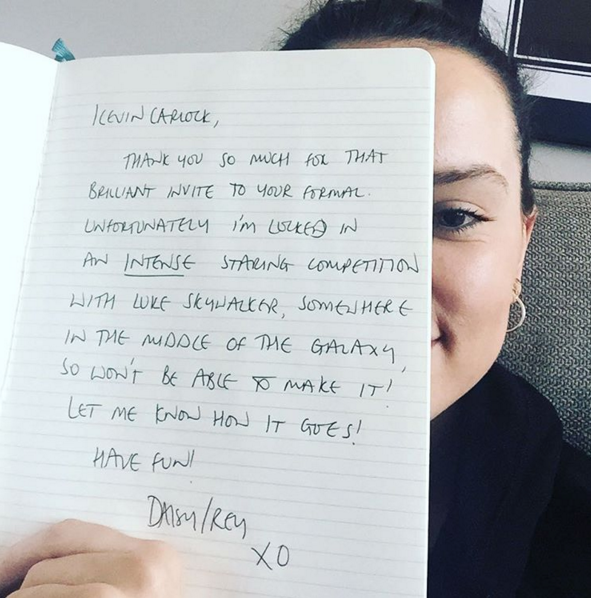 KEVIN CARLOCK,
THANK YOU SO MUCH FOR THAT
BRILLIANT INVITE TO YOUR FORMAL.
UNFORTUNATELY I'M LOCKED IN
AN INTENSE STARING COMPETITION
WITH LUKE SKYWALKER, SOMEWHERE
IN THE MIDDLE OF THE GALAXY,
SO WON'T BE ABLE TO MAKE IT!
LET ME KNOW HOW IT GOES!
HAVE FUN!
DAISY/REY
XO